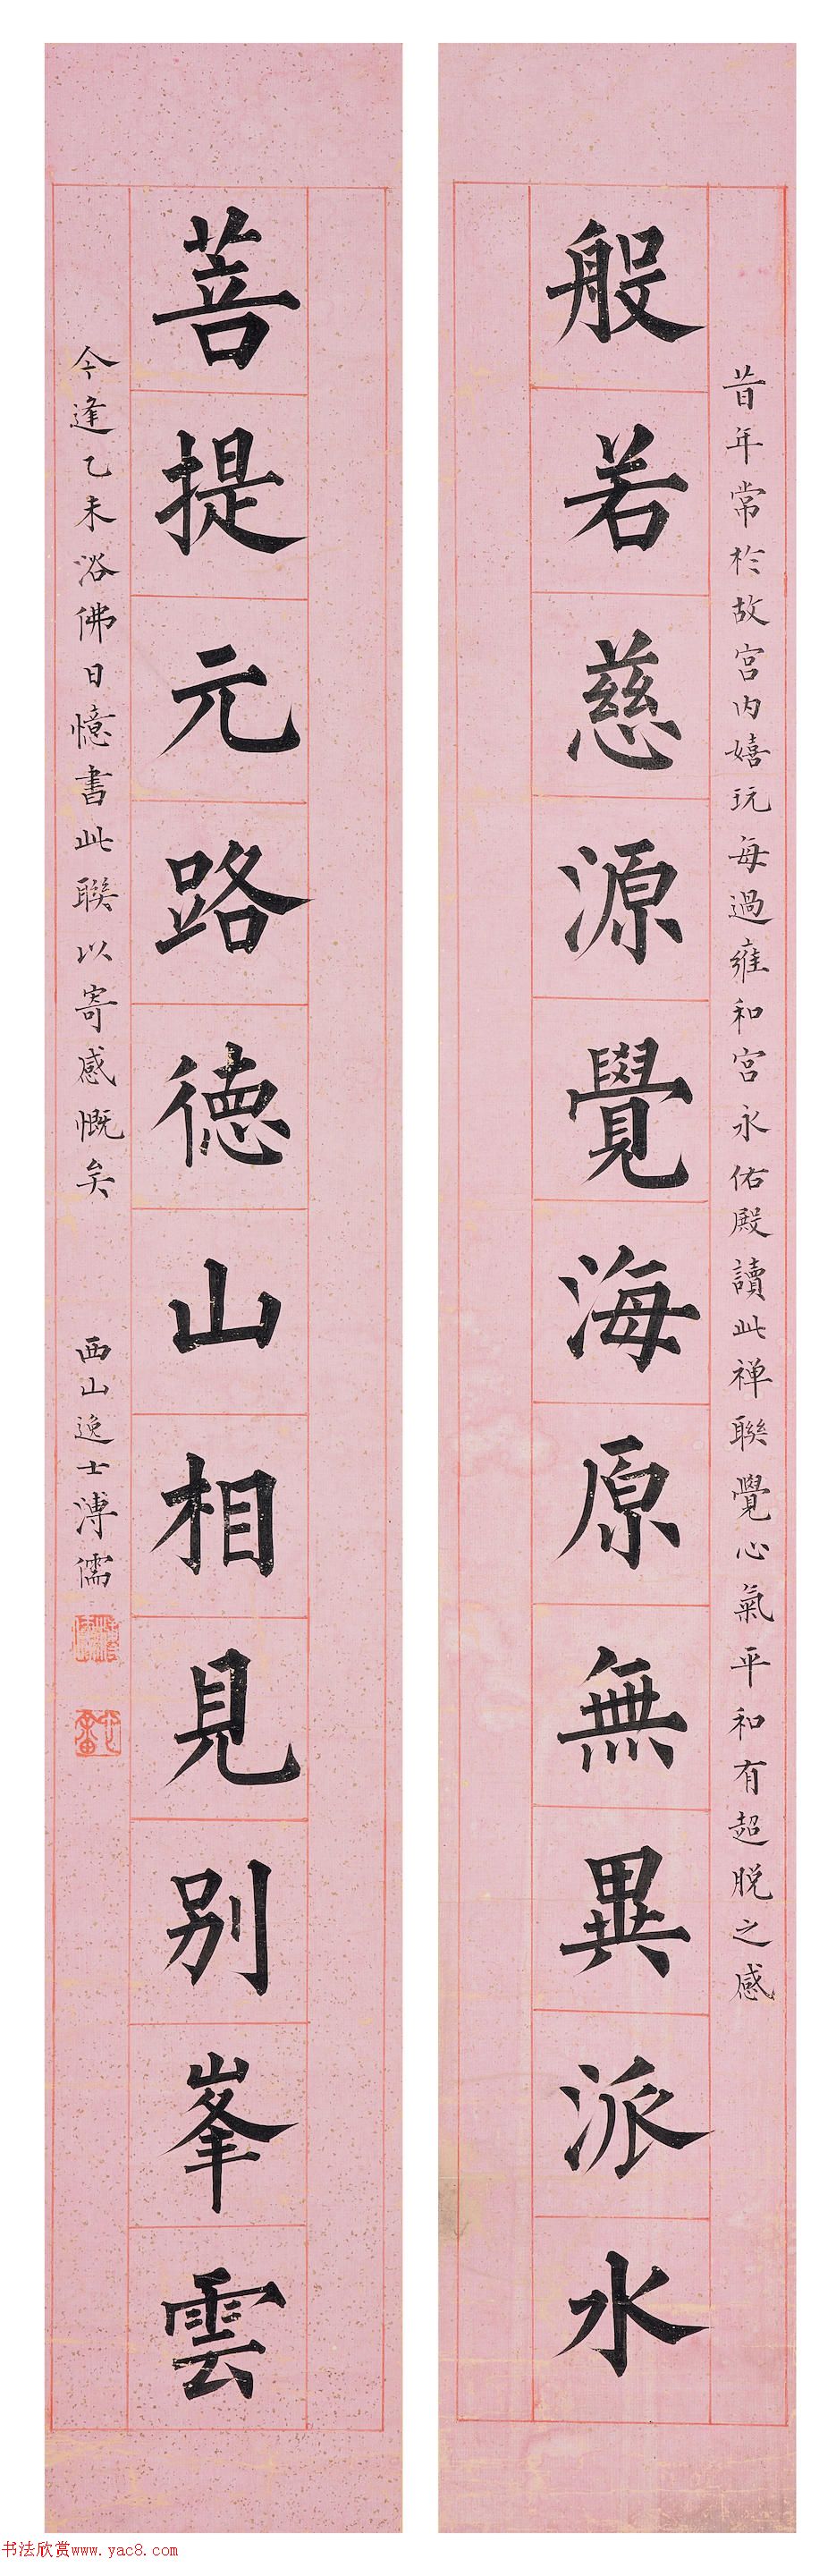 昔年常於故宮內嬉玩每過雍和宮永佑殿讀此禅聯覺心氣平和有超脱之感
般若慈源覺海原無異派水
菩提元路德山相見別峯雲
今逢乙未浴佛日憶書此聯以寄感慨矣 西山逸士溥儒
书法欣赏www.yac8.com